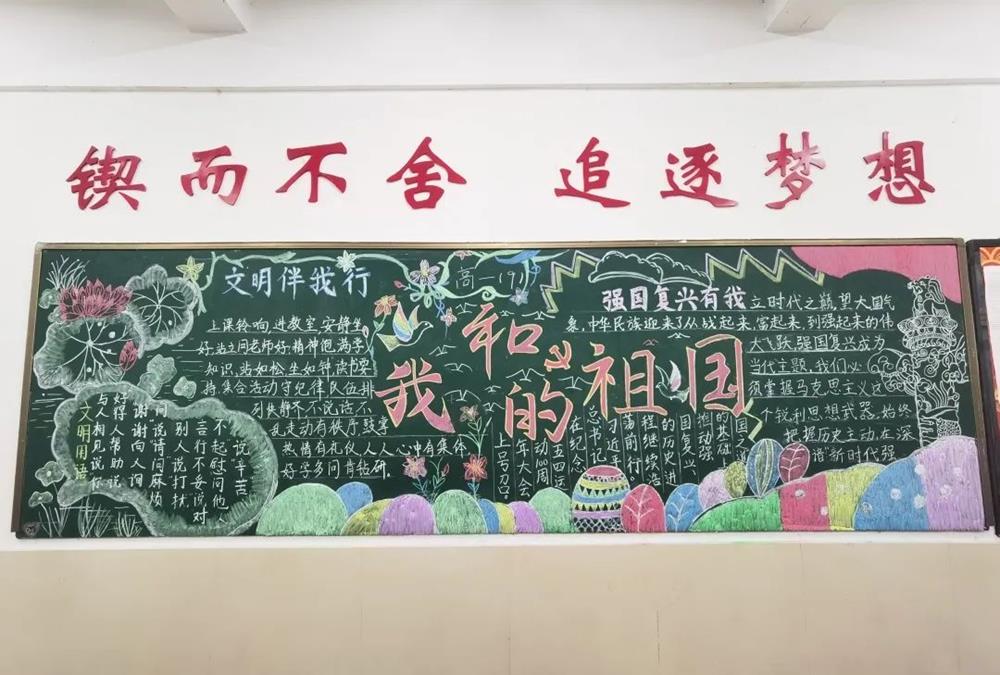 锲而不舍 追逐梦想
文明伴我行
高一(9)
上课铃响,进教室,安静坐
好,站立问老师好,精神饱满学
知识,站如松坐如钟读书要
持,集合活动守纪律队伍排
列快静齐不说话不
乱走动有秩序鼓掌
热情有礼仪人人心中有集体
好学多问肯钻研。
文明用语
与人相见说你
好得人帮助说
谢谢向人询
问说请问麻烦
别人说打扰
言行不妥说对
不起慰问他人
说辛苦
我和我的祖国
强国复兴有我
立时代之巅望大国气
象,中华民族迎来了从战起来,富起来,到强起来的伟
大飞跃,强国复兴成为
当代主题,我们必
须掌握马克思主义这
个锐利思想武器,始终
把握历史主动,在深
谱新时代强
国之
的基础
推动强
国复兴
的历史进
程继续浩
荡前行。
习近平
总书记
在纪念
五四运
动100周
年大会
上号召: